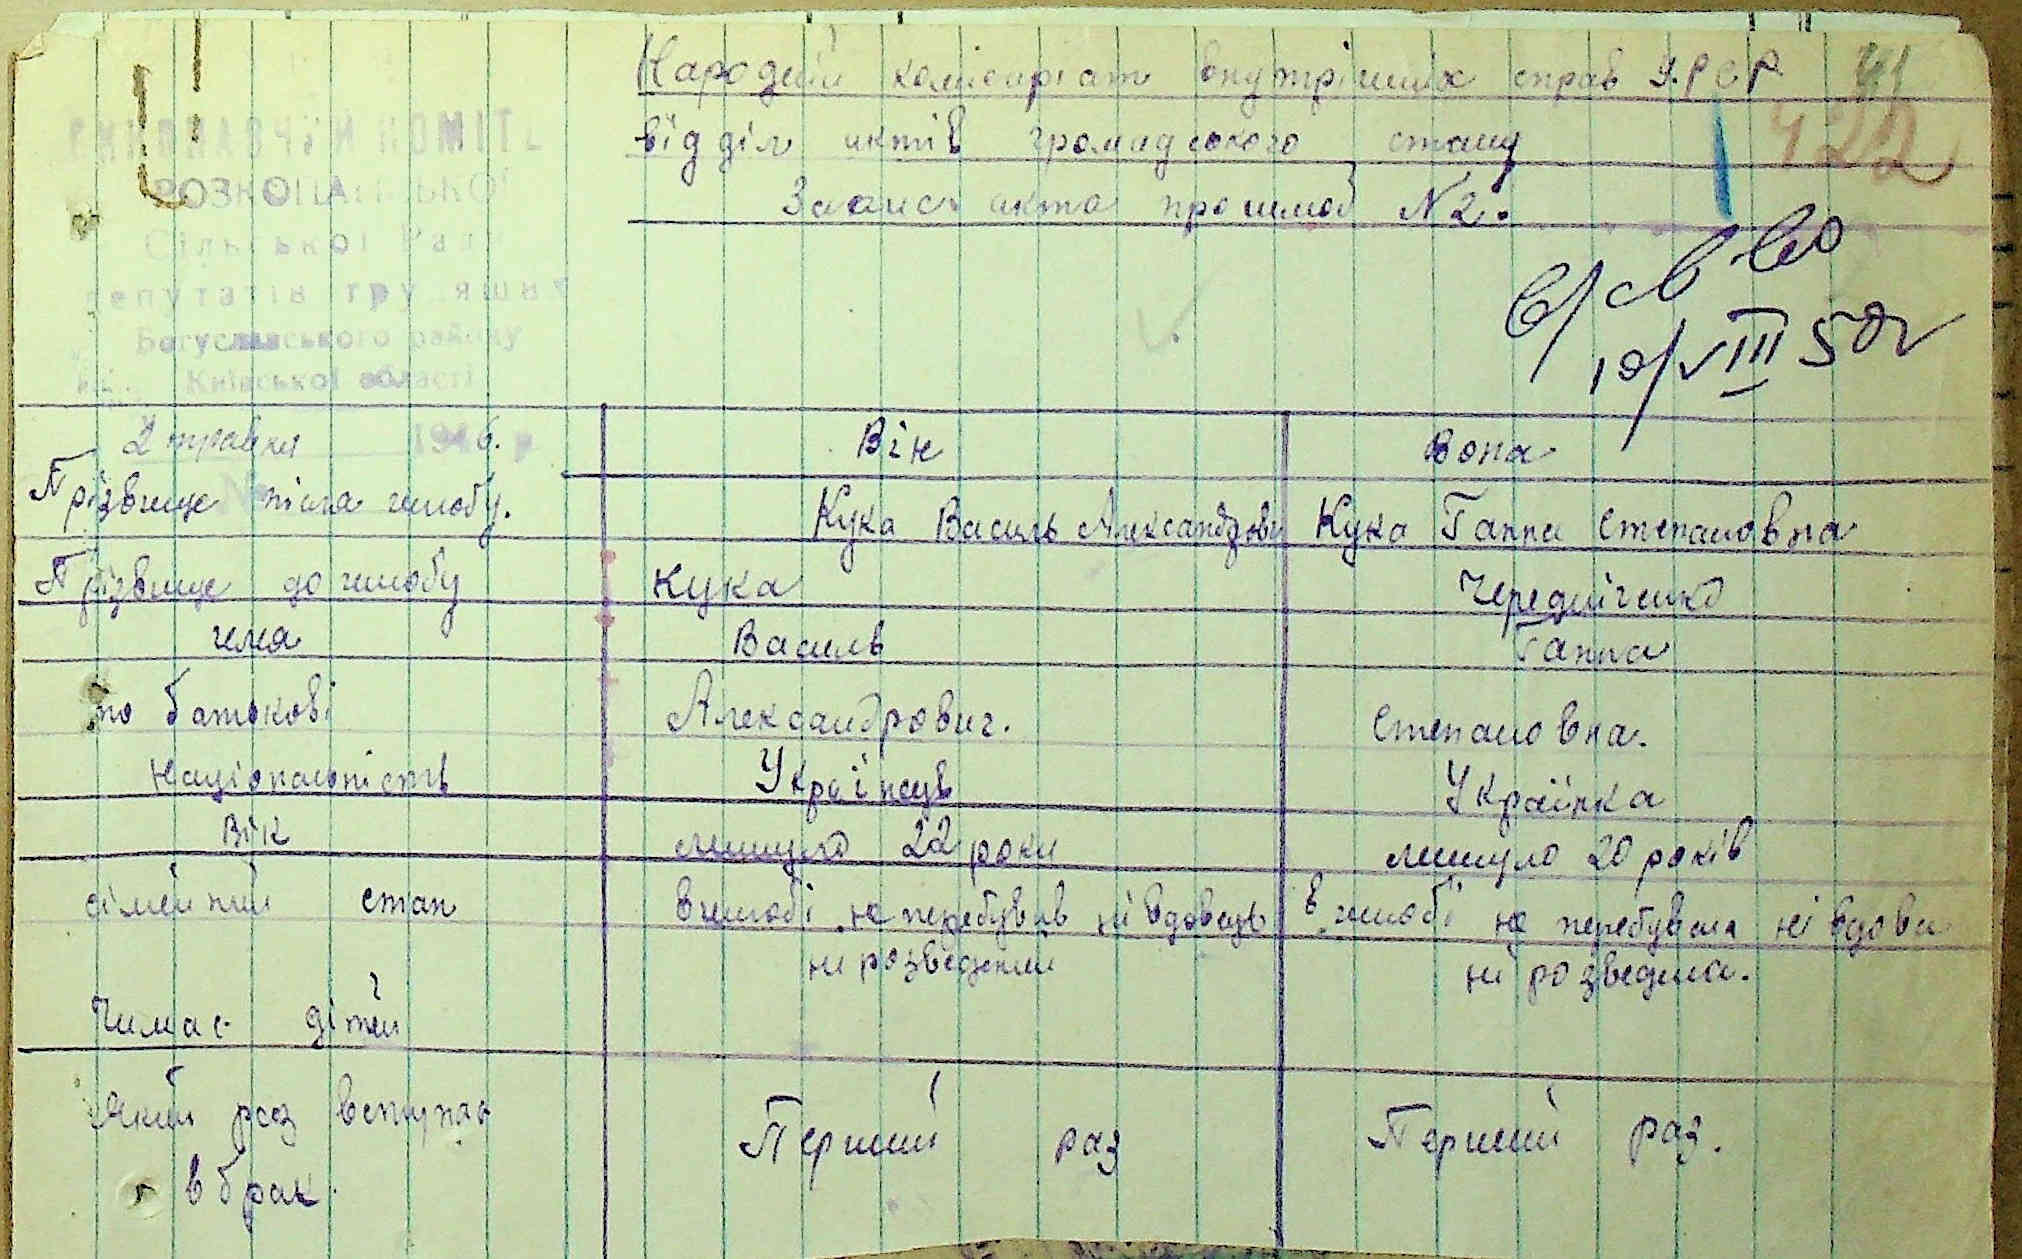 Народний комісаріат внутрішніх справ У.Р.С.Р. 41
відділ актів громадського стану 422
Запис акта про шлюб N 2.
ВИКОНАВЧИЙ КОМІТЕ
РОЗКОПАНСЬКОЇ
Сільської Ради
депутатів трудящих
Богуславського району
Київської області
10/VIII 50 г
2 травня 1946 р.
Він Вона
Прізвище після шлюбу. Кука Василь Александрови Кука Ганна Степановна
Прізвище до шлюбу Кука Чередніченко
імя Василь Ганна
по батькові Александрович. Степановна.
Національність Українець Українка
Вік минуло 22 роки минуло 20 років
сімейний стан в шлюбі не перебував ні вдовець в шлюбі не перебувала ні вдова
ні розведений ні розведена.
Чи має дітей
Який раз вступає Перший раз Перший раз.
в брак.